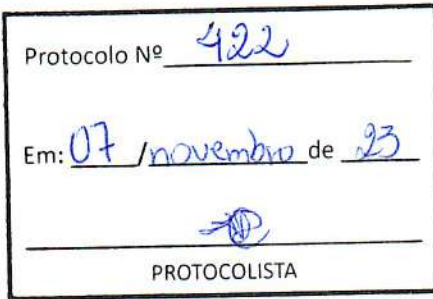 Protocolo Nº 422
Em: 07 /novembro de 23
PROTOCOLISTA